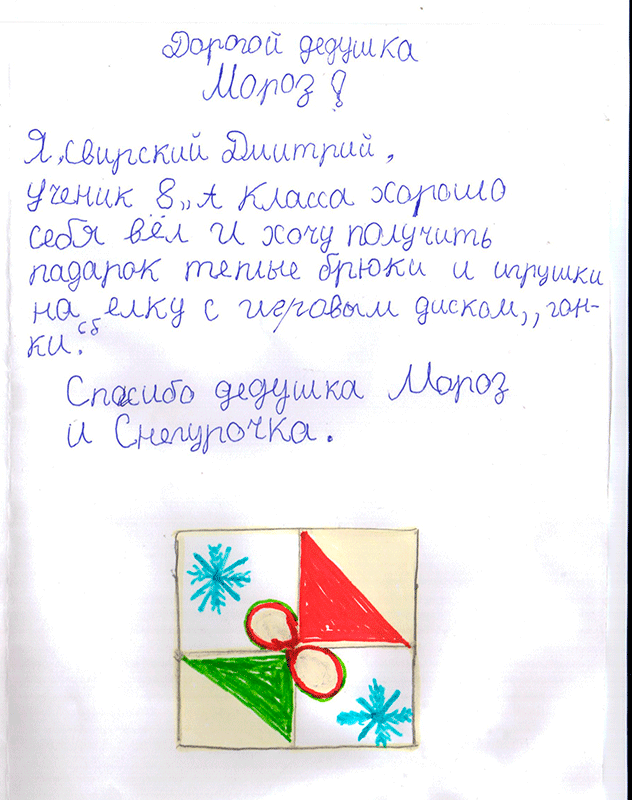 Дорогой дедушка
Мороз!
Я, Свирский Дмитрий,
ученик 8 „А класса хорошо
себя вёл и хочу получить
падарок теплые брюки и игрушки
на елку с игровым диском „гон-
ки.
Спасибо дедушка Мороз
и Снегурочка.